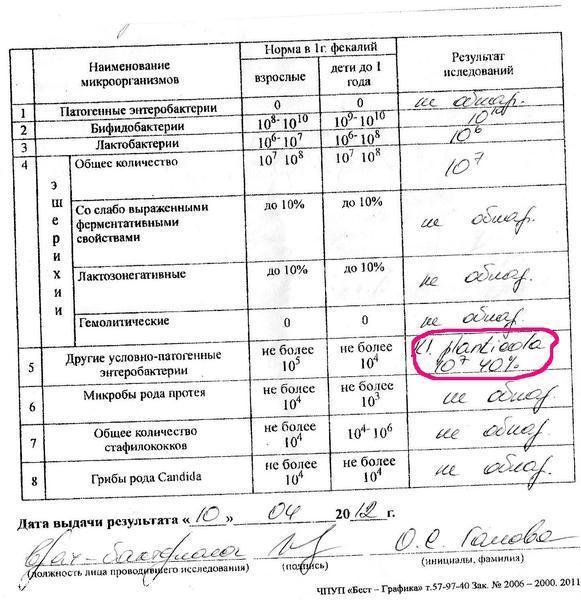 Наименование микроорганизмов
Норма в 1г. фекалий
Результат иследований
взрослые
дети до 1 года
1 Патогенные энтеробактерии 0 0 не обнар.
2 Бифидобактерии 10⁸- 10¹⁰ 10⁹- 10¹⁰ 10¹⁰
3 Лактобактерии 10⁶- 10⁷ 10⁶- 10⁸ 10⁶
4 эшерихии
Общее количество 10⁷ 10⁸ 10⁷ 10⁸ 10⁷
Со слабо выраженными ферментативными свойствами до 10% до 10% не обнар.
Лактозонегативные до 10% до 10% не обнар.
Гемолитические 0 0 не обнар.
5 Другие условно-патогенные энтеробактерии не более 10⁵ не более 10⁴ Kl. planticola 10⁷ 40%
6 Микробы рода протея не более 10⁴ не более 10³ не обнар.
7 Общее количество стафилококков не более 10⁴ 10⁴- 10⁶ не обнар.
8 Грибы рода Candida не более 10⁴ не более 10⁴ не обнар.
Дата выдачи результата « 10 » 04 2012 г.
врач-бактериолог О.С.
(должность лица проводившего исследования) (подпись) (инициалы, фамилия)
ЧПУП «Бест – Графика» т.57-97-40 Зак. № 2006 – 2000. 2011